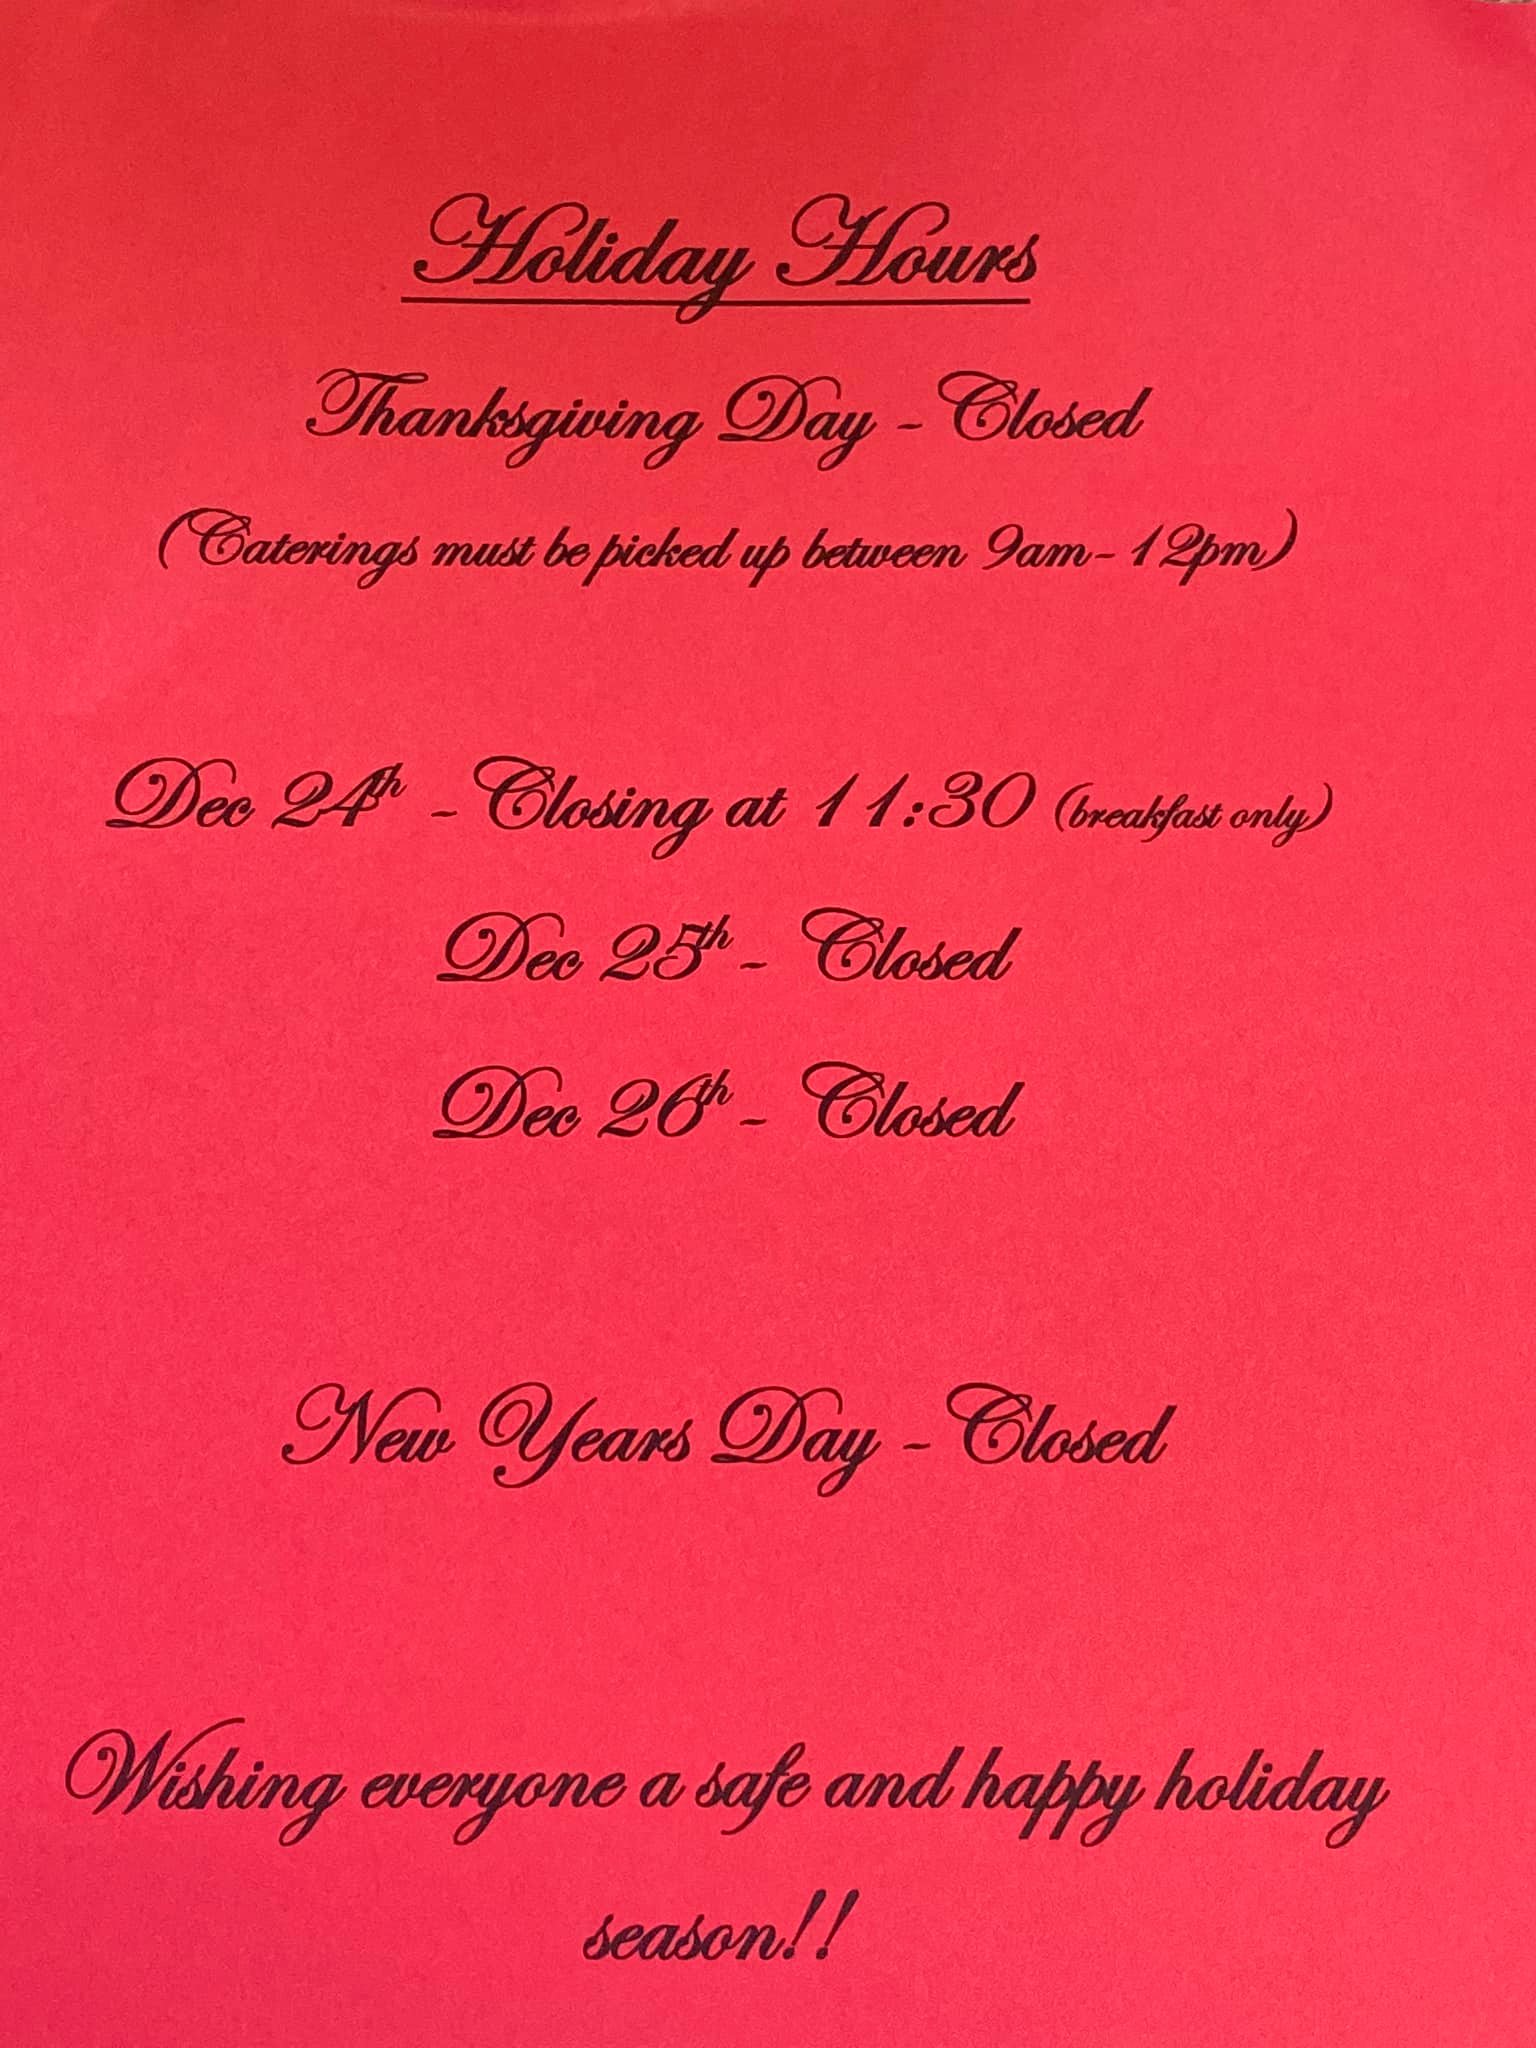 Holiday Hours
Thanksgiving Day - Closed
(Caterings must be picked up between 9am- 12pm)
Dec 24th - Closing at 11:30 (breakfast only)
Dec 25th - Closed
Dec 26th - Closed
New Years Day - Closed
Wishing everyone a safe and happy holiday
season!!